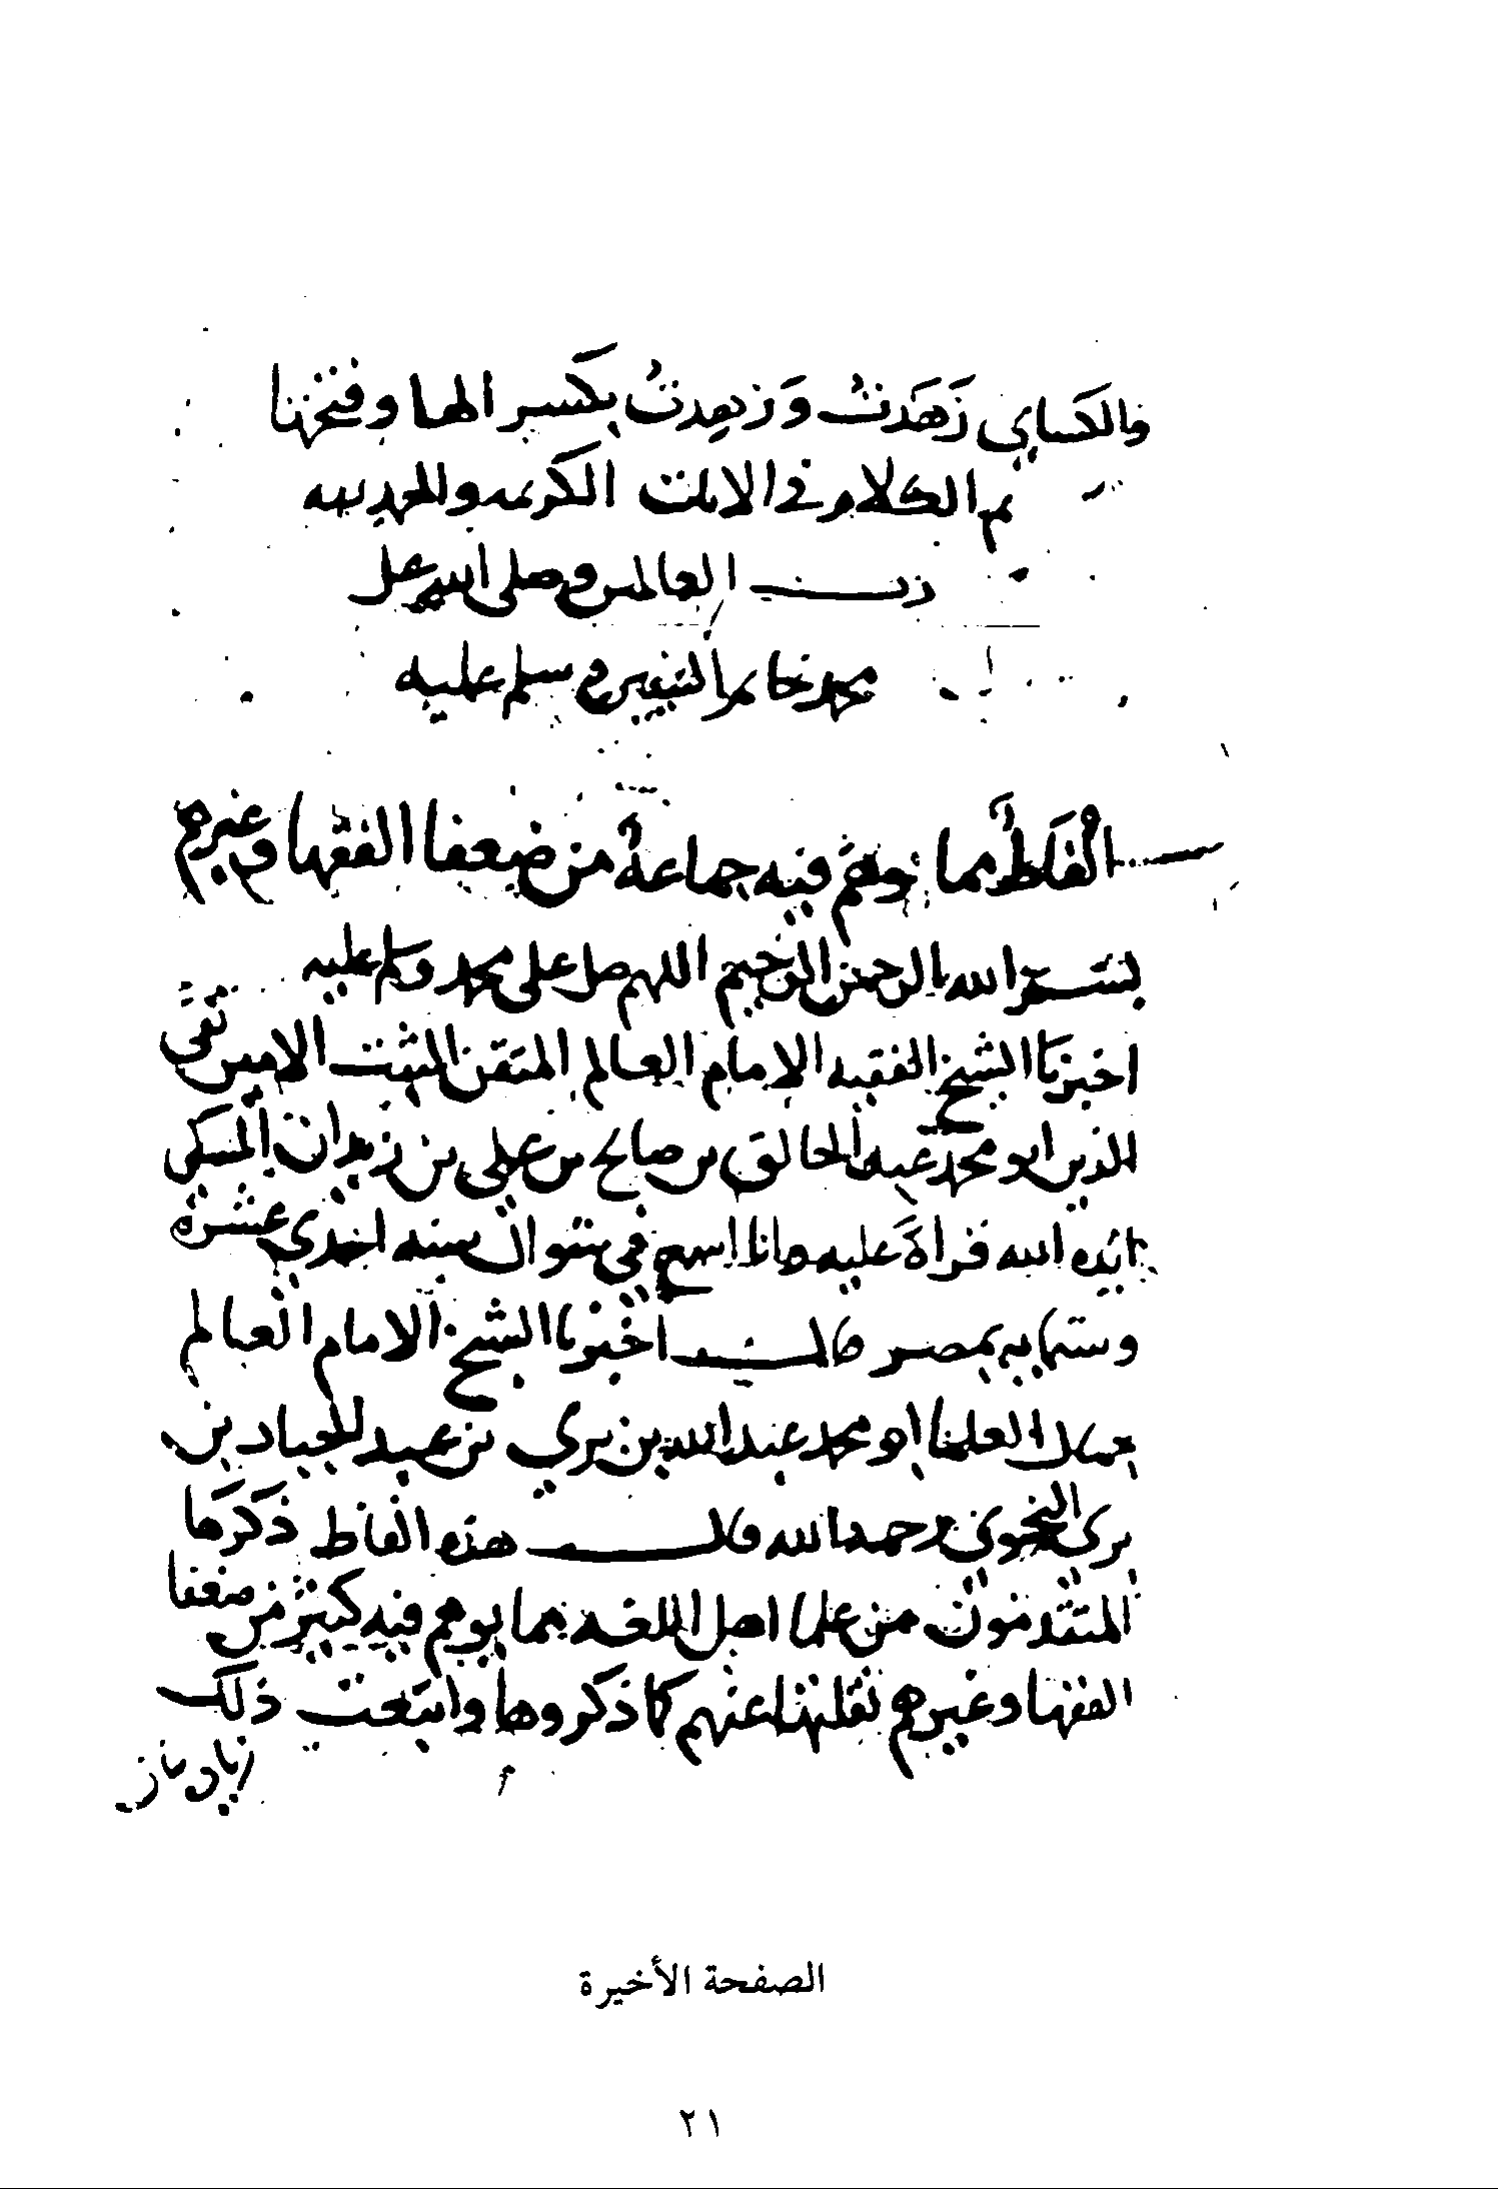 قال الكساي زَهَدتُ وَزَهِدتُ بكسر الها وفتحها
تم الكلام في الايات الكريمه والحمد لله
رب العالمين وصلى الله على
محمد خاتم النبيين وسلم عليه
الْفَاظٌ مما وهم فيه جماعةٌ من ضعفا الفقها وغيرهم
بسم الله الرحمن الرحيم اللهم صل على محمد وسلم عليه
اخبرنا الشيخ الفقيه الامام العالم المتقن المثبت الامين تقي
الدين ابو محمد عبد الخالق بن صالح بن علي بن زيدان المسكي
ايده الله قراةً عليه وانا اسمع في شوال سنه احدي عشرة
وستمايه بمصر قال اخبرنا الشيخ الامام العالم
جمال العلما ابو محمد عبد الله بن بري بن عبد الجبار بن
بري النحوي رحمه الله قال هذه الفاظ ذكرها
المتقدمون من علما اهل اللغه مما يوهم فيه كثير من ضعفا
الفقها وغيرهم نقلتها عنهم كما ذكروها واتبعت ذلك
الصفحة الأخيرة
٢١